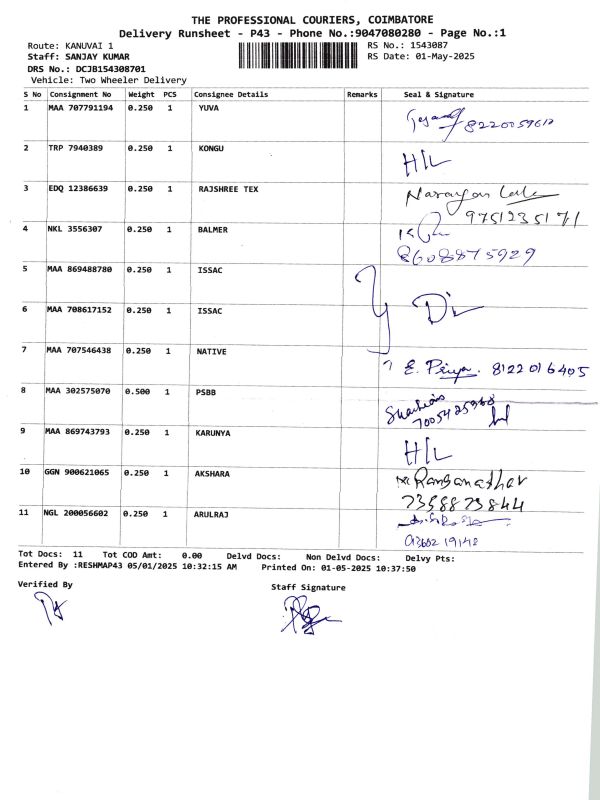 THE PROFESSIONAL COURIERS, COIMBATORE
Delivery Runsheet - P43 - Phone No.:9047080280 - Page No.:1
Route: KANUVAI 1 RS No.: 1543087
Staff: SANJAY KUMAR RS Date: 01-May-2025
DRS No.: DCJB154308701
Vehicle: Two Wheeler Delivery
S No Consignment No Weight PCS Consignee Details Remarks Seal & Signature
1 MAA 707791194 0.250 1 YUVA
8220059612
2 TRP 7940389 0.250 1 KONGU H/L
3 EDQ 12386639 0.250 1 RAJSHREE TEX Narayan
9751235171
4 NKL 3556307 0.250 1 BALMER
8608875929
5 MAA 869488780 0.250 1 ISSAC
6 MAA 708617152 0.250 1 ISSAC
7 MAA 707546438 0.250 1 NATIVE E. Priya. 8122016405
8 MAA 302575070 0.500 1 PSBB
9 MAA 869743793 0.250 1 KARUNYA H/L
10 GGN 900621065 0.250 1 AKSHARA Ranganathar
7358873844
11 NGL 200056602 0.250 1 ARULRAJ
Tot Docs: 11 Tot COD Amt: 0.00 Delvd Docs: Non Delvd Docs: Delvy Pts:
Entered By :RESHMAP43 05/01/2025 10:32:15 AM Printed On: 01-05-2025 10:37:50
Verified By Staff Signature